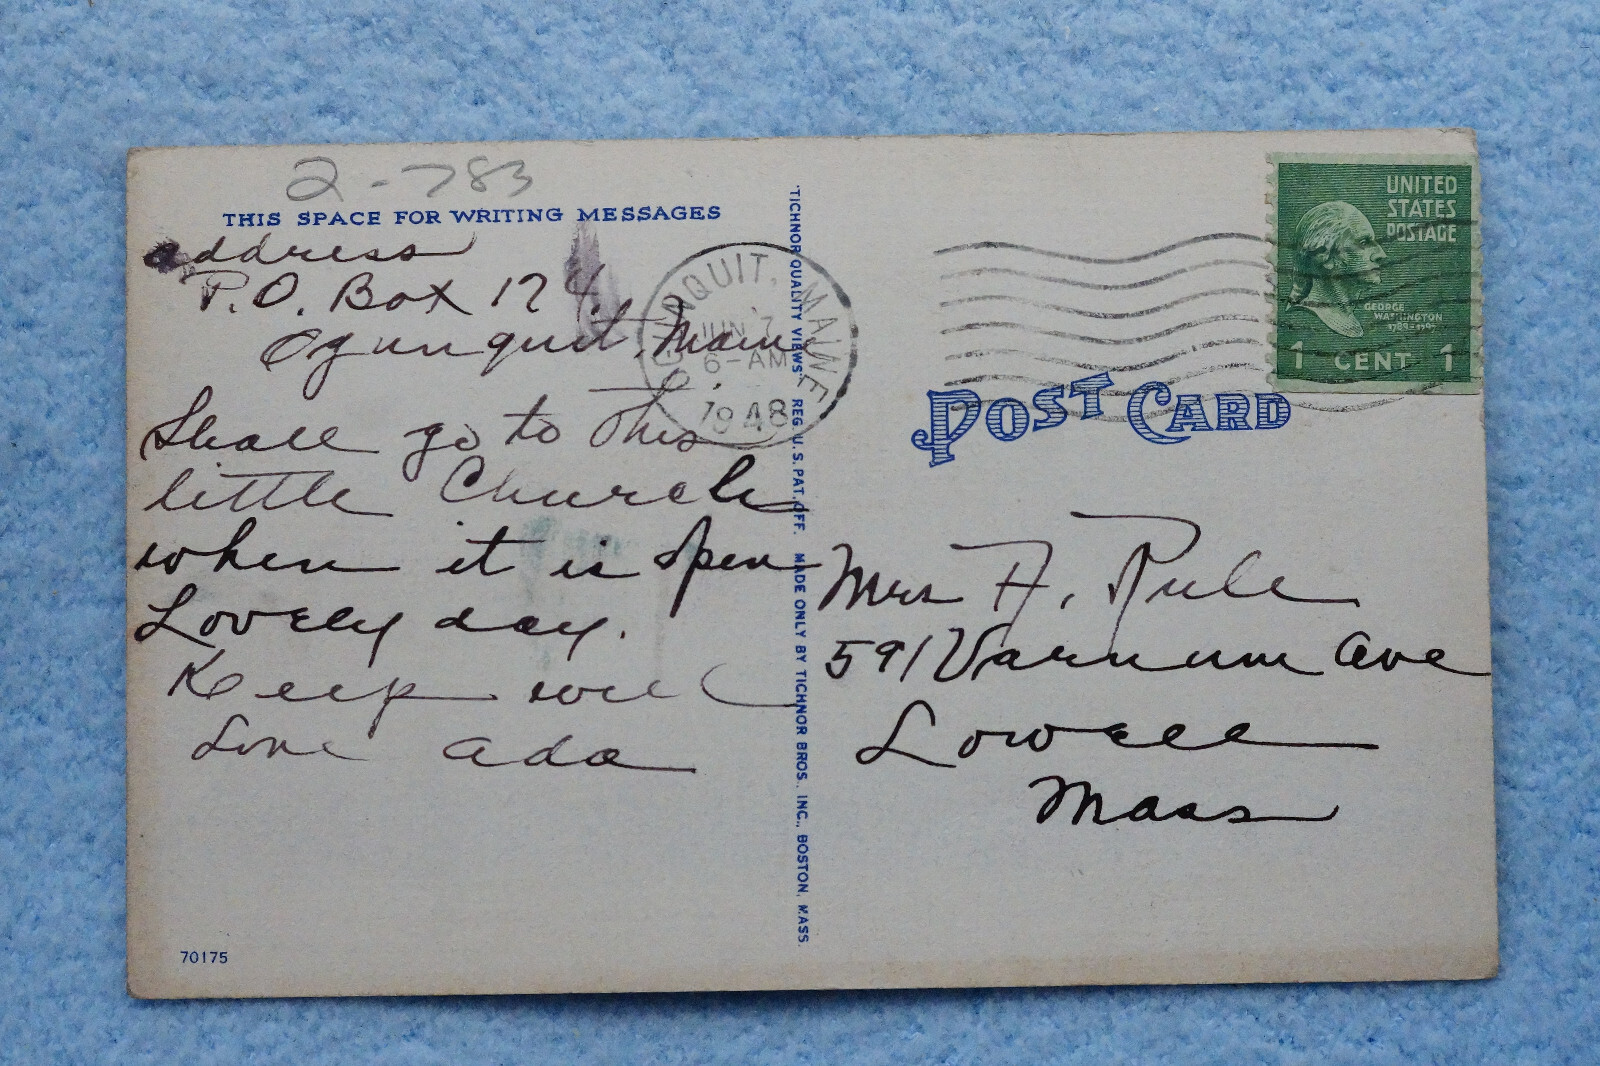 2-783
THIS SPACE FOR WRITING MESSAGES
address
P.O. Box 174
Ogunquit, Maine
Shall go to this
little Church
when it is open
Lovely day.
Keep well
Love Ada
70175
"TICHNOR QUALITY VIEWS" REG. U.S. PAT. OFF. MADE ONLY BY TICHNOR BROS. INC., BOSTON, MASS.
OGUNQUIT, MAINE
JUN 7
6-AM
1948
UNITED
STATES
POSTAGE
GEORGE
WASHINGTON
1789-1797
1 CENT 1
POST CARD
Mrs A. Rule
591 Varnum Ave
Lowell
Mass